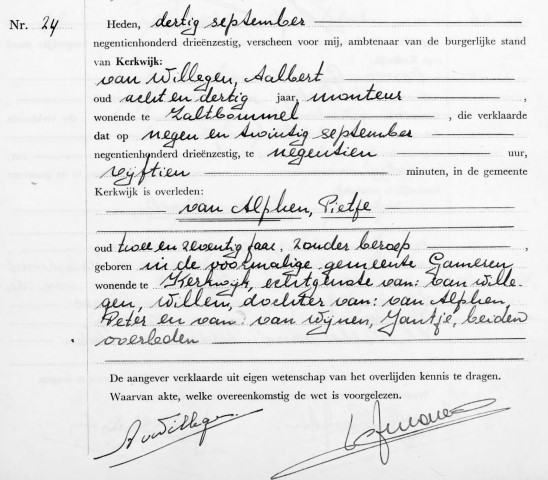 Nr. 24
Heden, dertig september
negentienhonderd drieënzestig, verscheen voor mij, ambtenaar van de burgerlijke stand
van Kerkwijk:
van Willegen, Aalbert
oud acht en dertig jaar, monteur ,
wonende te Zaltbommel , die verklaarde
dat op negen en twintig september
negentienhonderd drieënzestig, te negentien uur,
vijftien minuten, in de gemeente
Kerkwijk is overleden:
van Alphen, Pietje
oud twee en zeventig jaar, zonder beroep ,
geboren in de voormalige gemeente Gameren
wonende te Kerkwijk, echtgenote van: van Wille-
gen, Willem, dochter van: van Alphen,
Peter en van: van Wijnen, Jantje, beiden
overleden
De aangever verklaarde uit eigen wetenschap van het overlijden kennis te dragen.
Waarvan akte, welke overeenkomstig de wet is voorgelezen.
A v Willegen